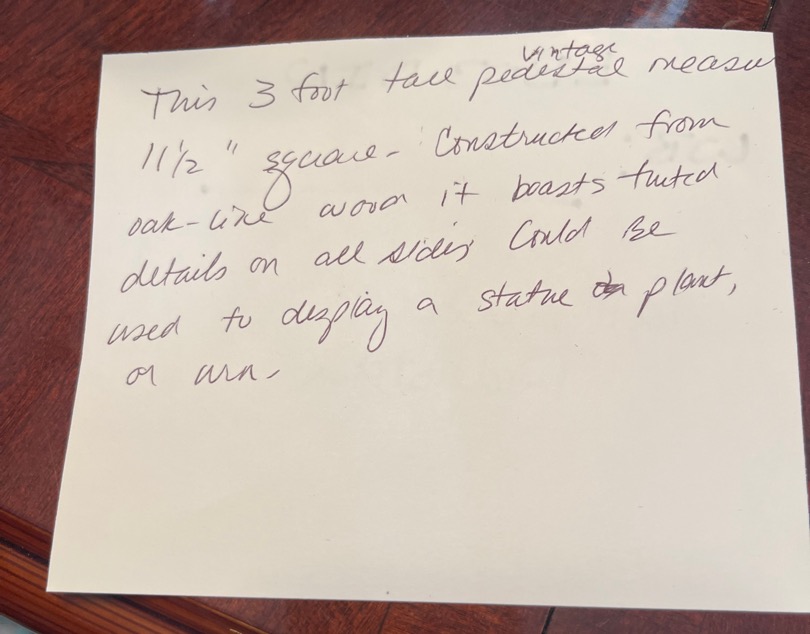 This 3 foot tall vintage pedestal measu
11 1/2" square - Constructed from
oak-like wood it boasts fluted
details on all sides Could Be
used to display a statue plant,
or urn.